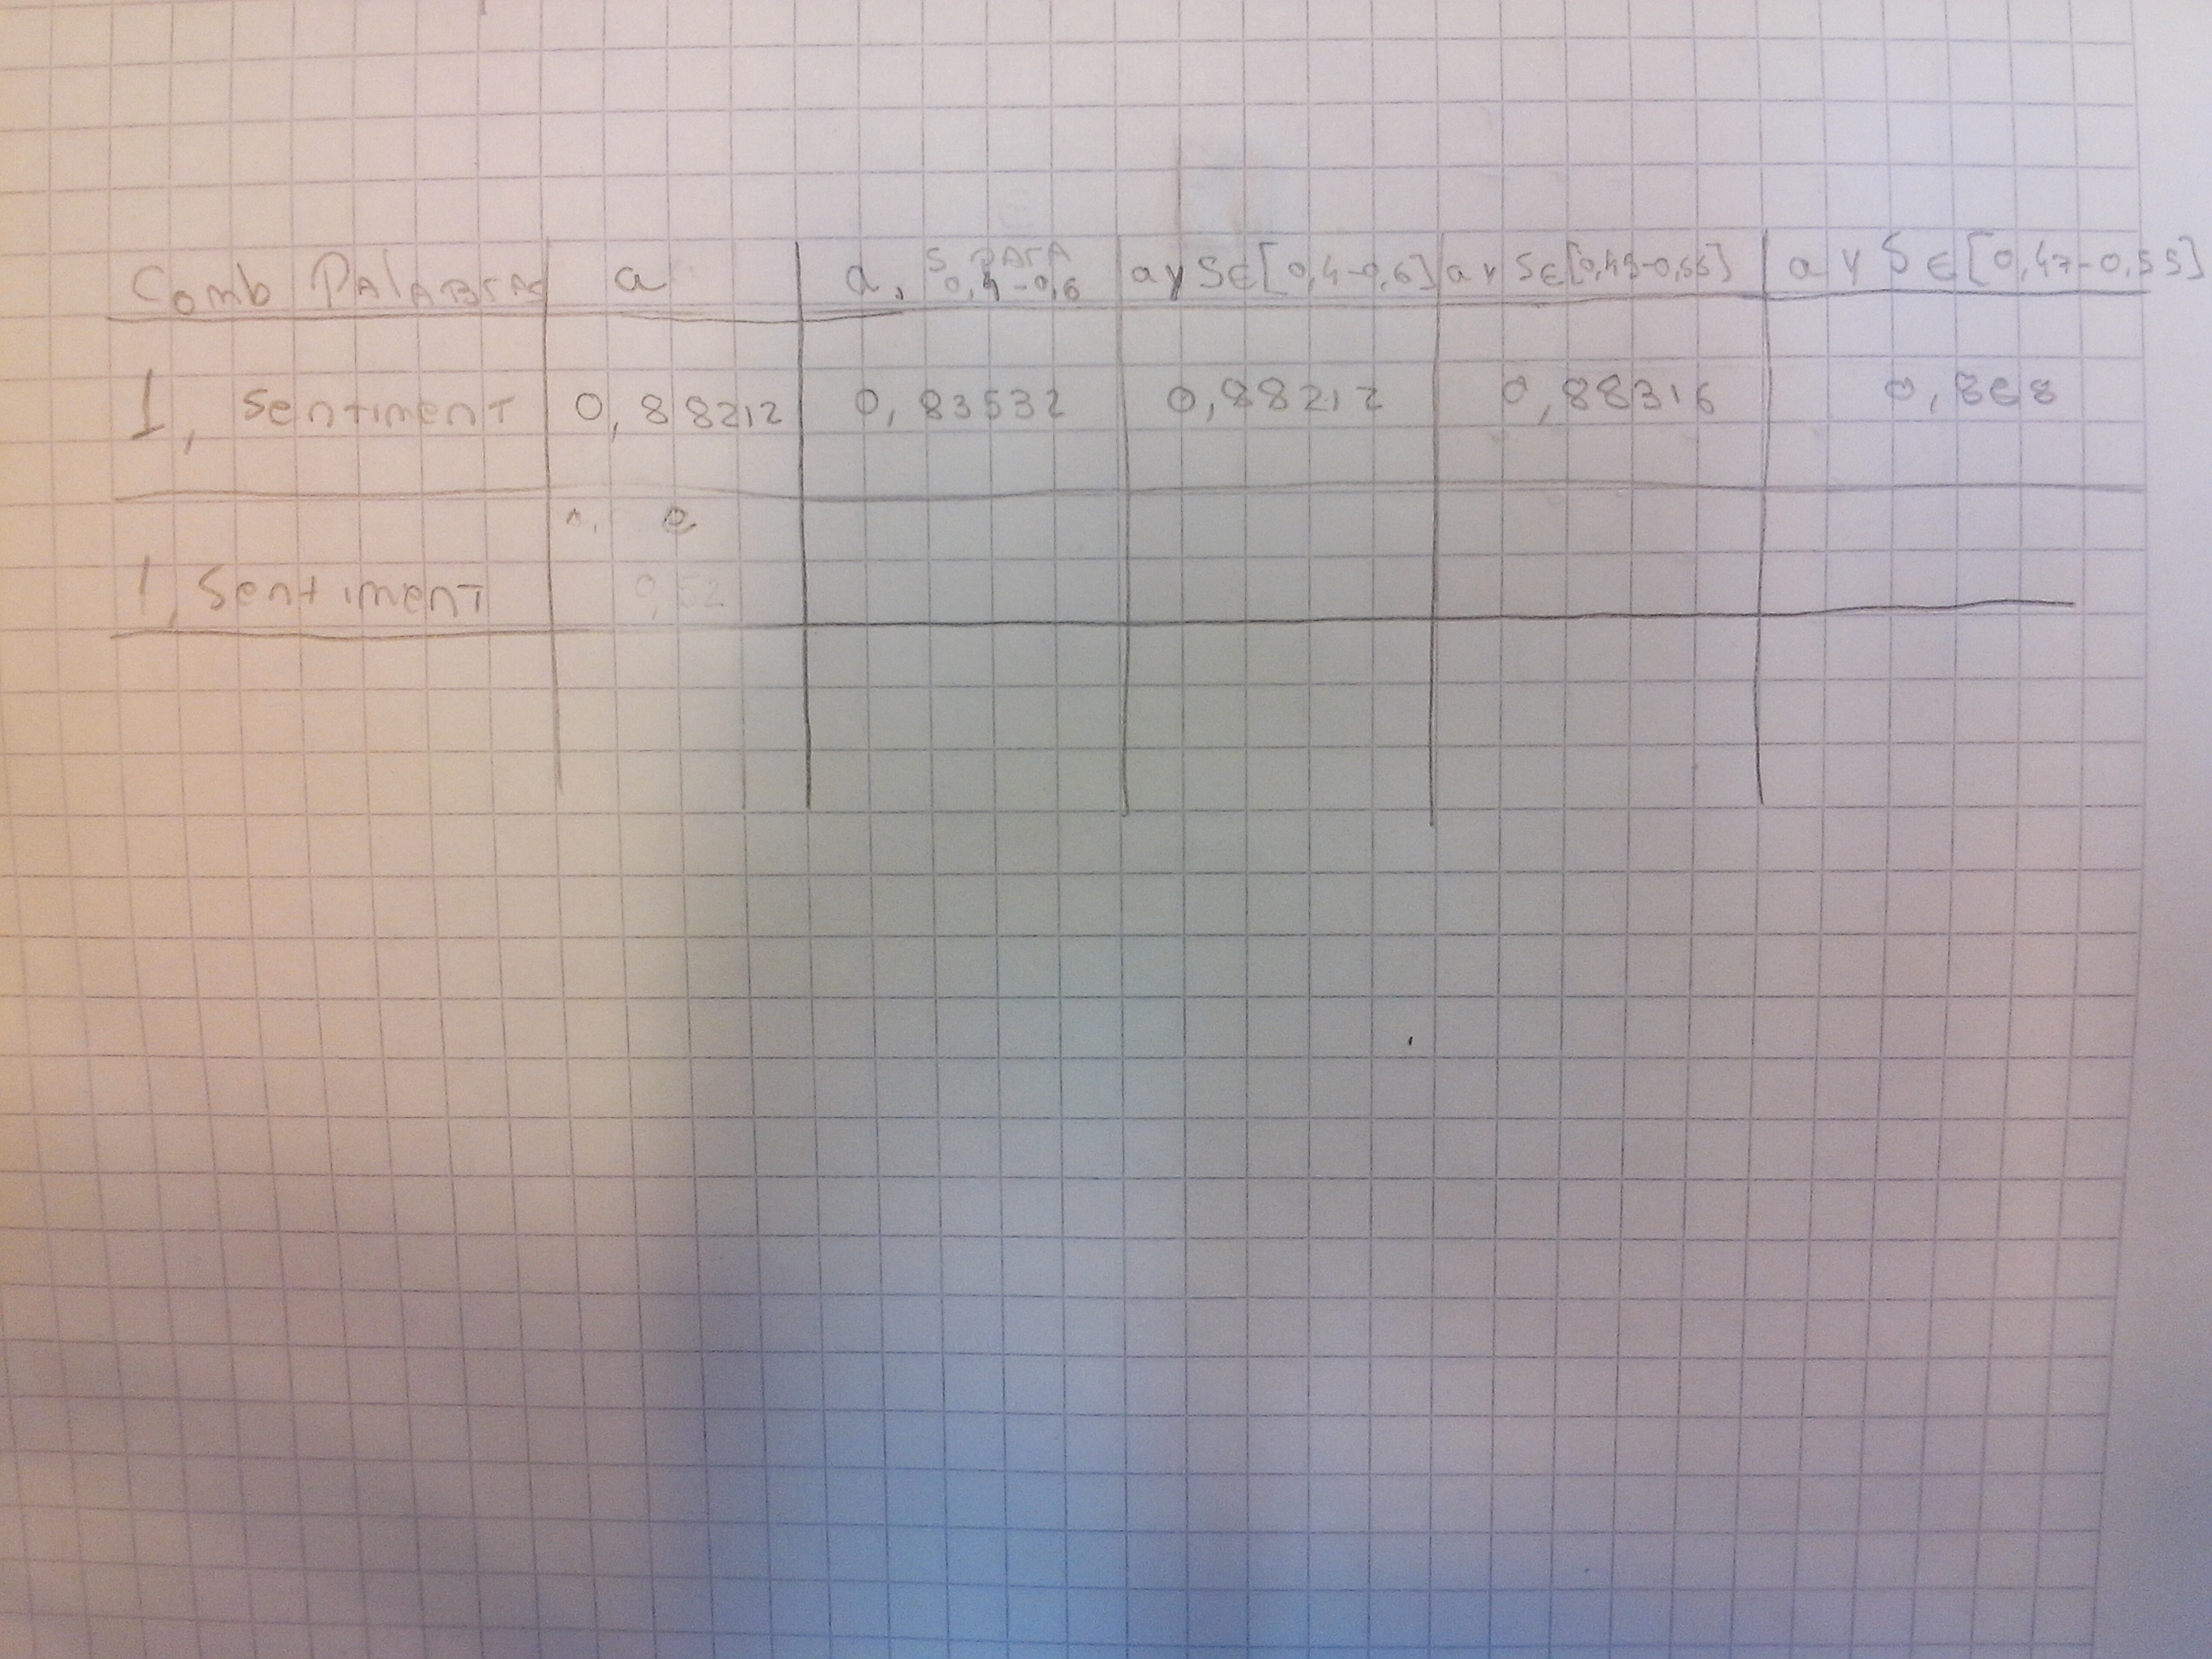 Comb Palabras a a, S para 0,4-0,6 a y S∈[0,4-0,6] a y S∈[0,45-0,55] a y S∈[0,47-0,55]
1, sentiment 0,88212 0,83532 0,88212 0,88316 0,868
1, sentiment 0,52